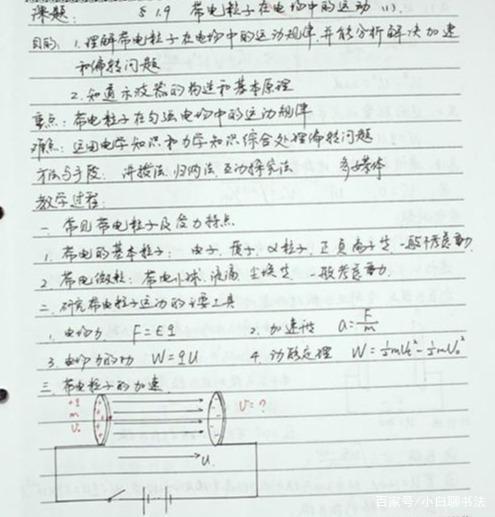 课题: §1.9 带电粒子在电场中的运动(1).
目的: 1.理解带电粒子在电场中的运动规律,并能分析解决加速
和偏转问题
2.知道示波器的构造和基本原理
重点: 带电粒子在匀强电场中的运动规律
难点: 运用电学知识和力学知识综合处理偏转问题
方法与手段: 讲授法,归纳法,互动探究法 多媒体
教学过程:
一.常见带电粒子及受力特点
1.带电的基本粒子: 电子,质子,α粒子,正负离子等,一般不考虑重力.
2.带电微粒: 带电小球,液滴,尘埃等 一般考虑重力.
二.研究带电粒子运动的主要工具
1.电场力 F=Eq 2.加速度 a=F/m
3.电场力的功 W=qU 4.动能定理 W=½mVt²-½mV0²
三.带电粒子的加速
+q
m
V0
V=?
U
百家号/小白聊书法